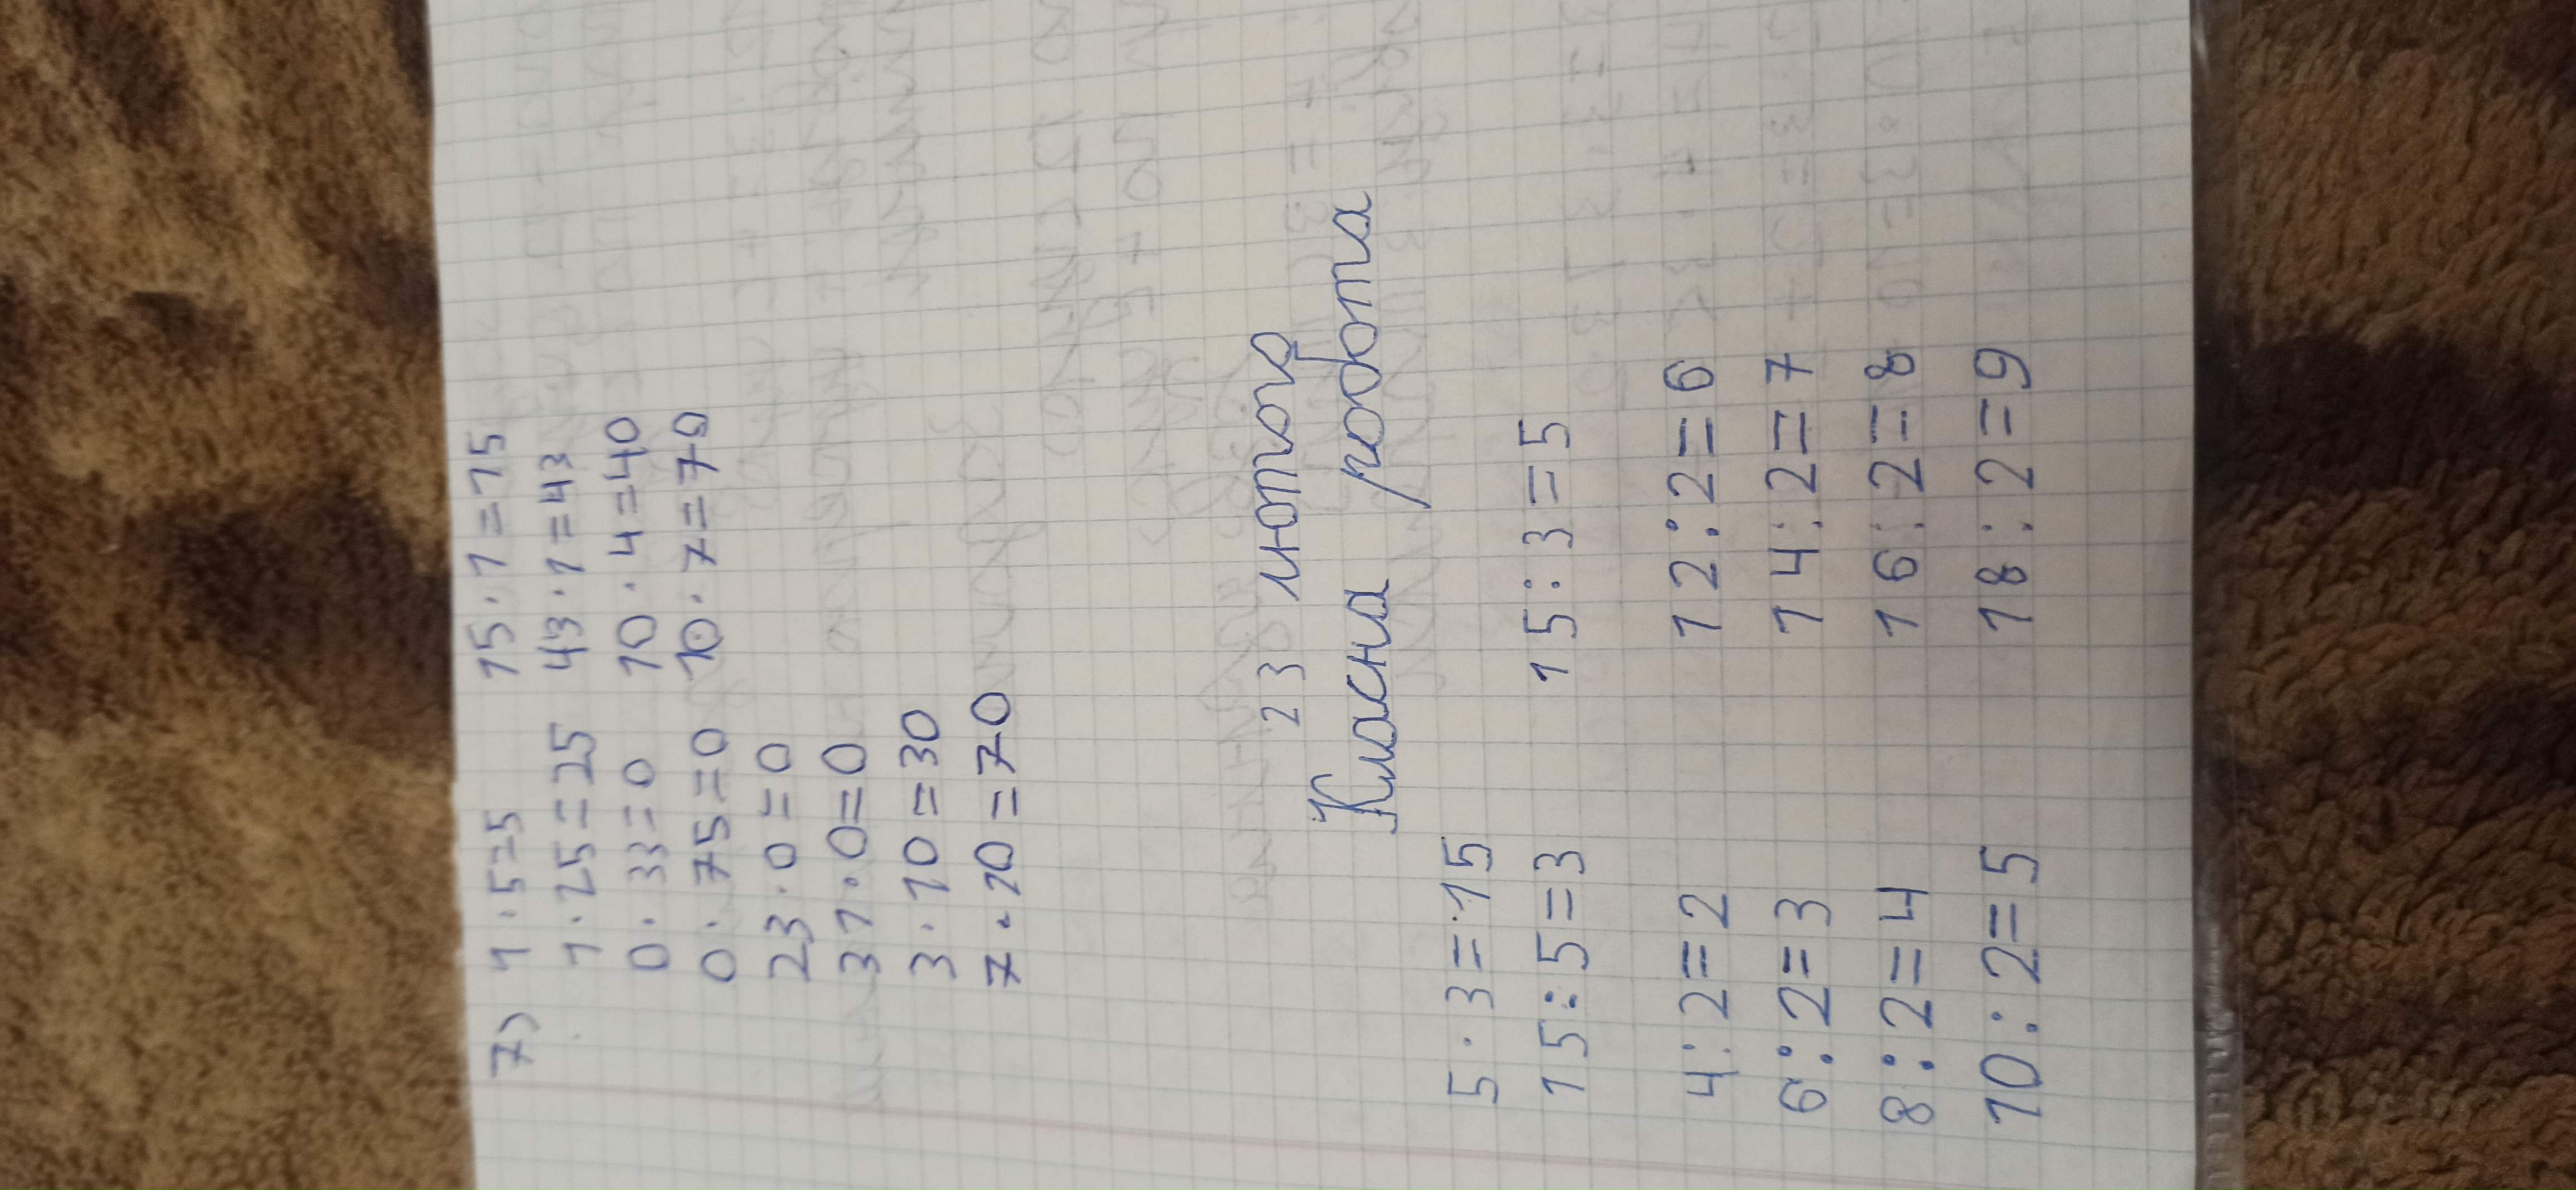 7) 1·5=5 15·1=15
1·25=25 43·1=43
0·33=0 10·4=40
0·75=0 10·7=70
23·0=0
31·0=0
3·10=30
7·10=70
23 лютого
Класна робота
5·3=15
15:5=3 15:3=5
4:2=2 12:2=6
6:2=3 14:2=7
8:2=4 16:2=8
10:2=5 18:2=9